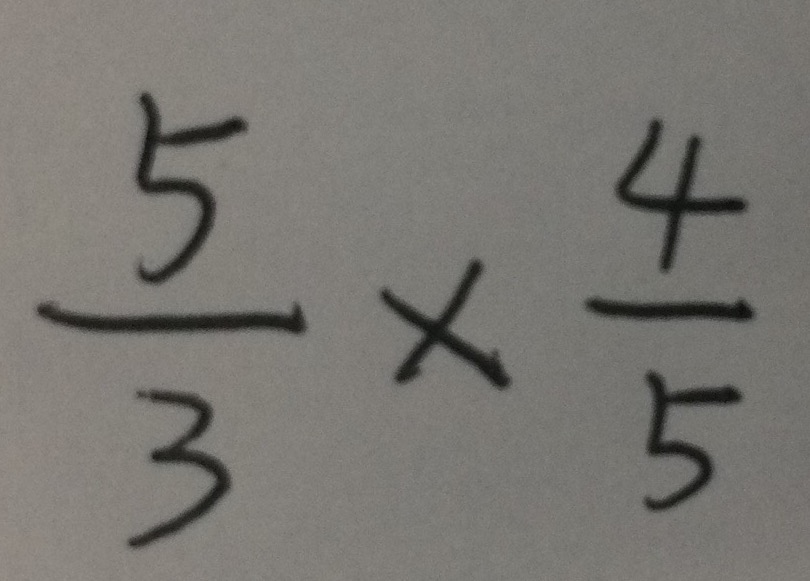 5/3 × 4/5